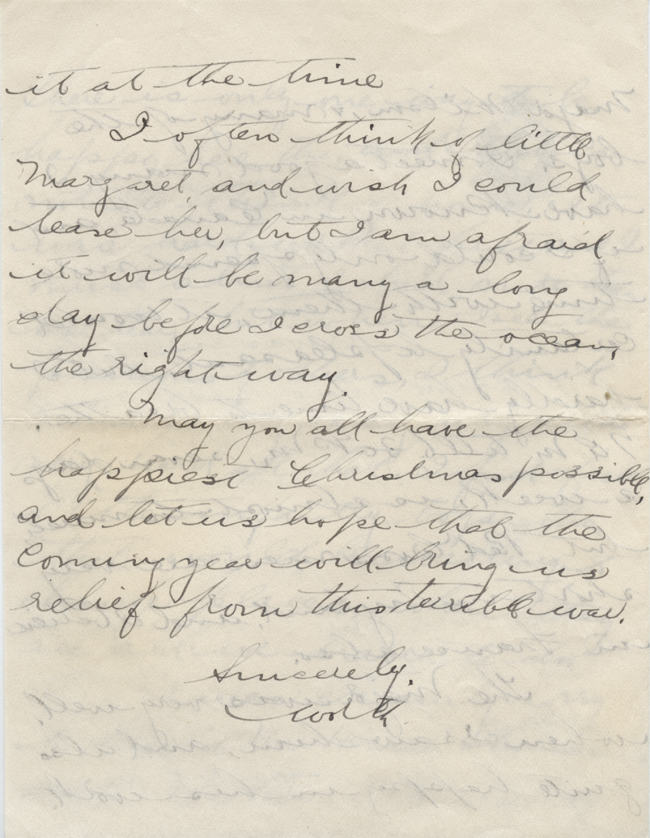 it at the time
I often think of little
Margaret, and wish I could
tease her, but I am afraid
it will be many a long
day before I cross the ocean,
the right way.
May you all have the
happiest Christmas possible,
and let us hope that the
coming year will bring us
relief from this terrible war.
Sincerely,
Worth